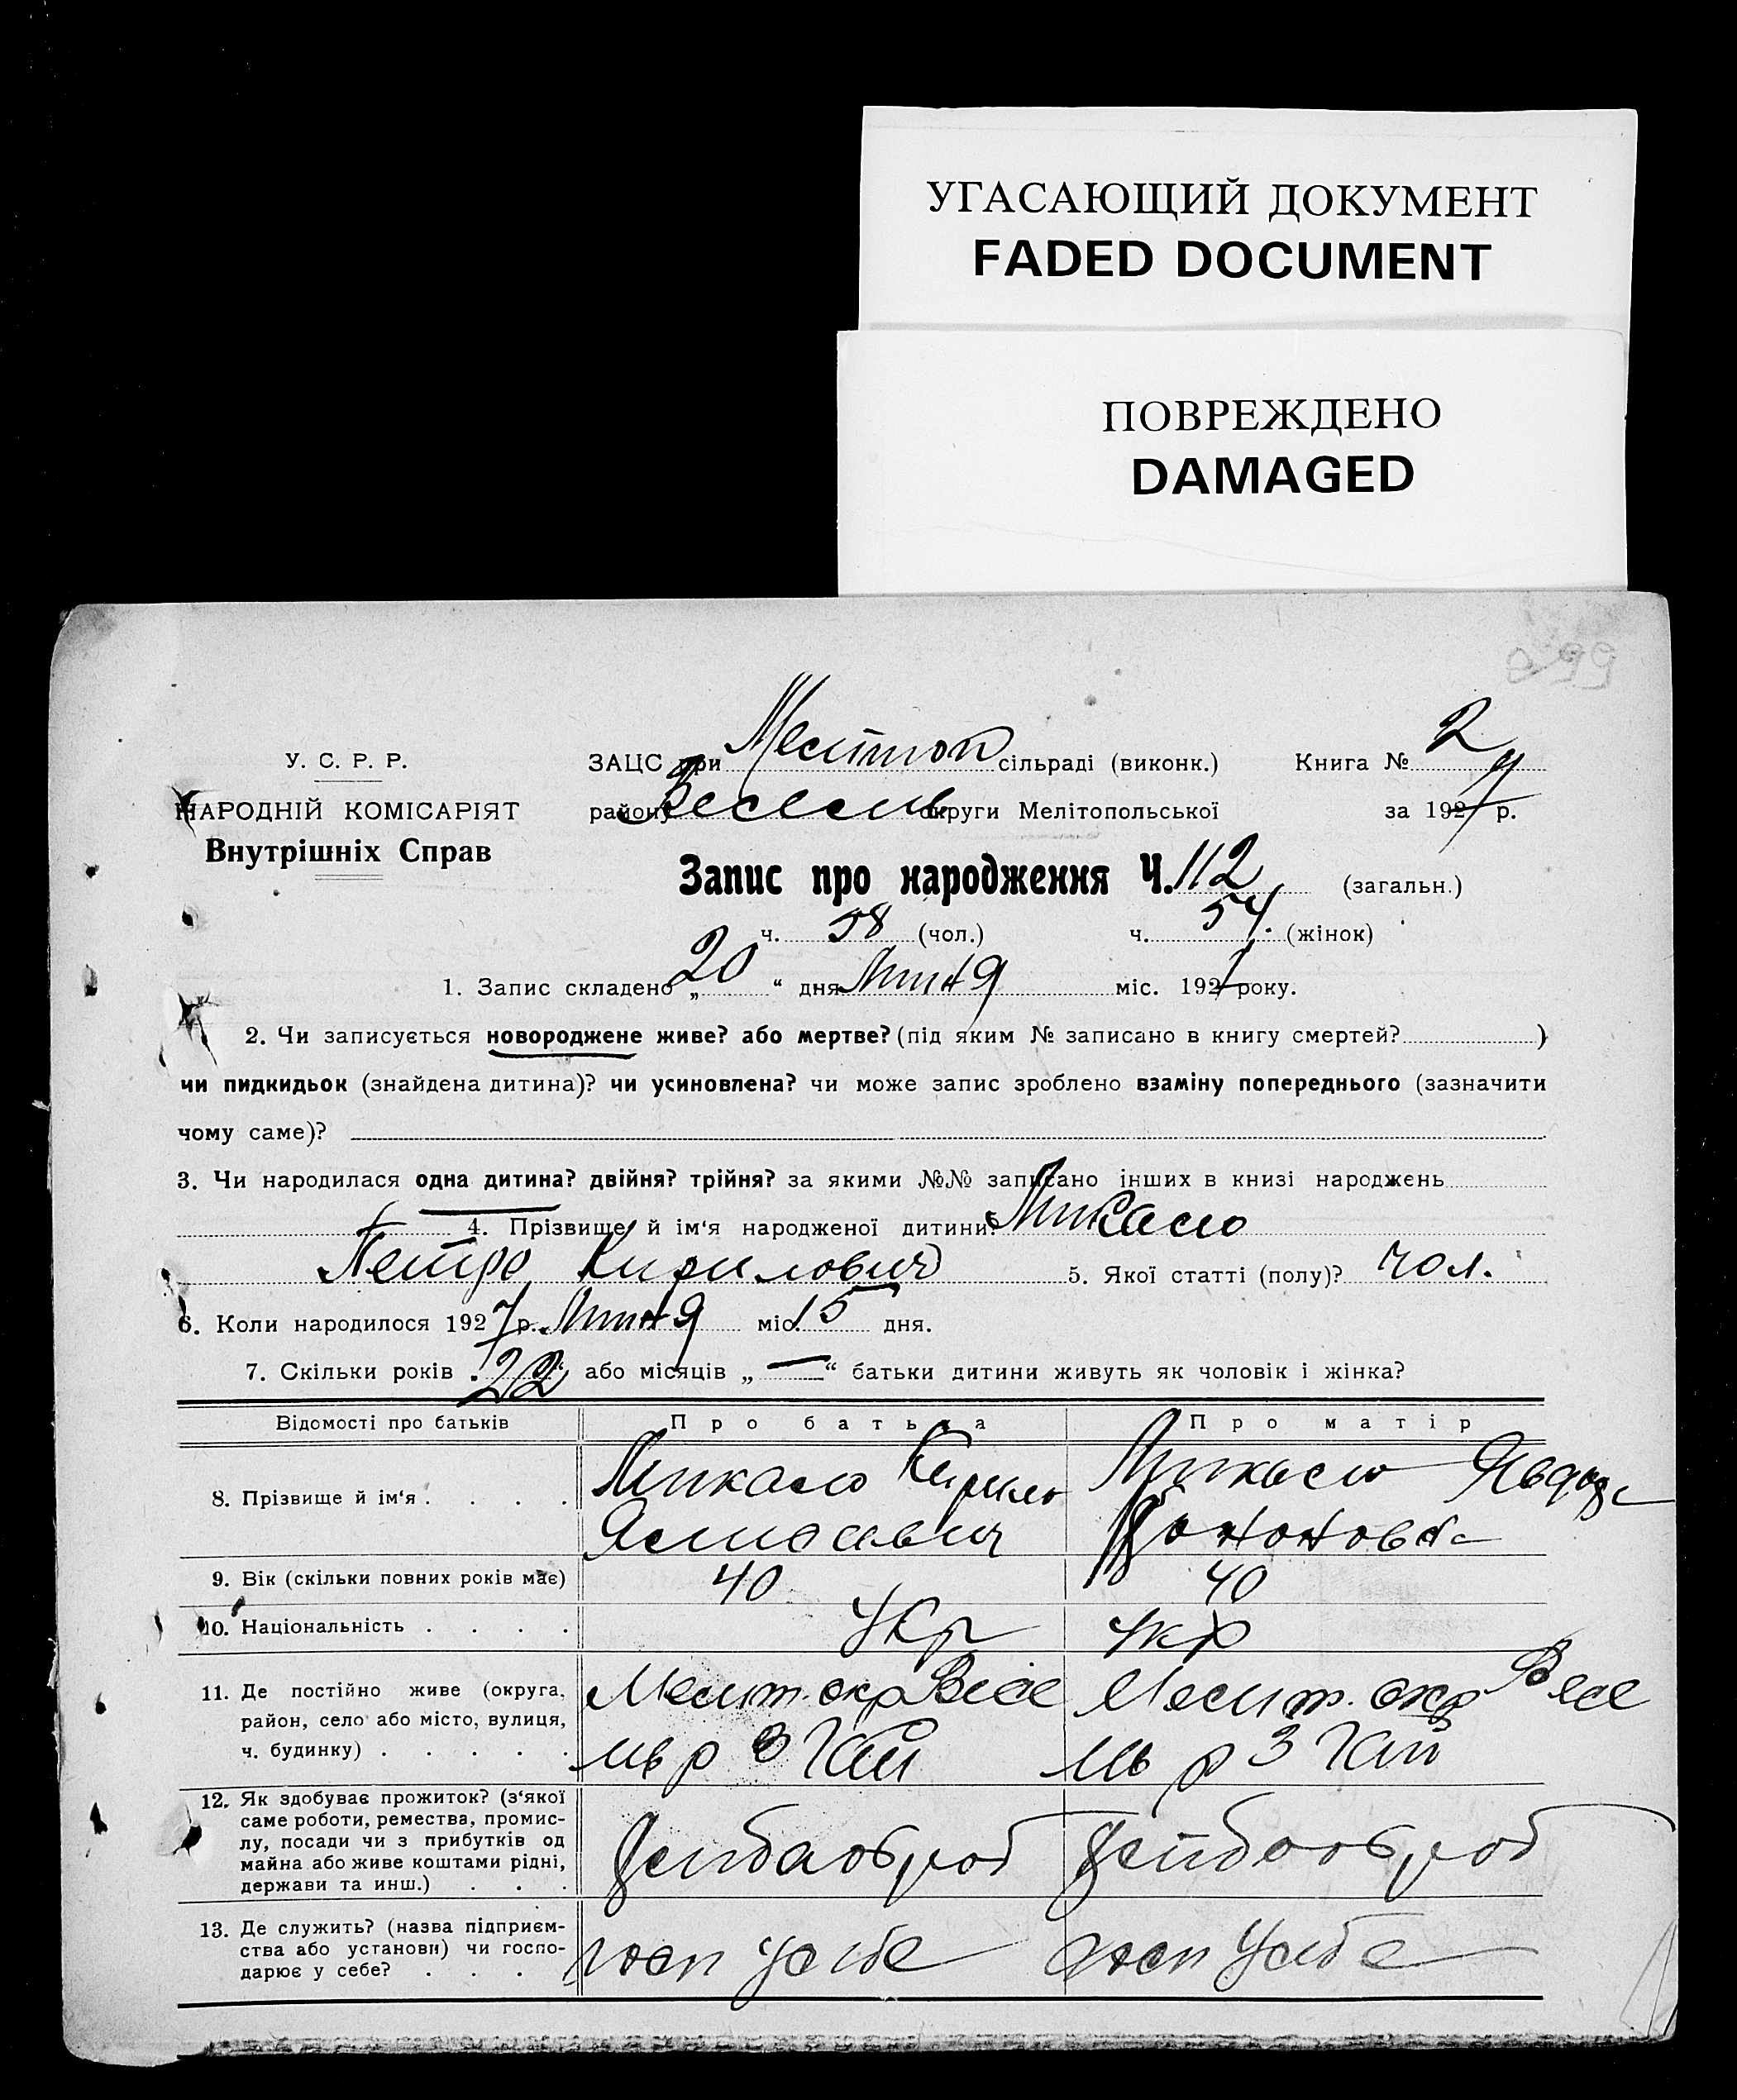 УГАСАЮЩИЙ ДОКУМЕНТ
FADED DOCUMENT
ПОВРЕЖДЕНО
DAMAGED
У. С. Р. Р.
НАРОДНІЙ КОМІСАРІЯТ
Внутрішніх Справ
ЗАЦС при сільраді (виконк.) Книга № 2
району Веселів округи Мелітопольської за 1927 р.
Запис про народження Ч. 112 (загальн.)
ч. 58 (чол.) ч. 54. (жінок)
1. Запис складено „20“ дня Липня міс. 1927 року.
2. Чи записується новороджене живе? або мертве? (під яким № записано в книгу смертей?)
чи пидкидьок (знайдена дитина)? чи усиновлена? чи може запис зроблено взаміну попереднього (зазначити
чому саме)?
3. Чи народилася одна дитина? двійня? трійня? за якими №№ записано інших в книзі народжень
4. Прізвище й ім‘я народженої дитини?
Петро Кирилович 5. Якої статті (полу)? чол.
6. Коли народилося 1927 р. Липня міс. 15 дня.
7. Скільки років „22“ або місяців „—“ батьки дитини живуть як чоловік і жінка?
Відомості про батьків Про батька Про матір
8. Прізвище й ім‘я Кирило
9. Вік (скільки повних років має) 40 40
10. Національність Укр Укр
11. Де постійно живе (округа,
район, село або місто, вулиця,
ч. будинку) Мелит. окр Весе Мелит. окр Весе
лів р лів р
12. Як здобуває прожиток? (з‘якої
саме роботи, ремества, промис-
лу, посади чи з прибутків од
майна або живе коштами рідні,
держави та инш.)
13. Де служить? (назва підприєм-
ства або установи) чи госпо-
дарює у себе? госп у себе госп у себе